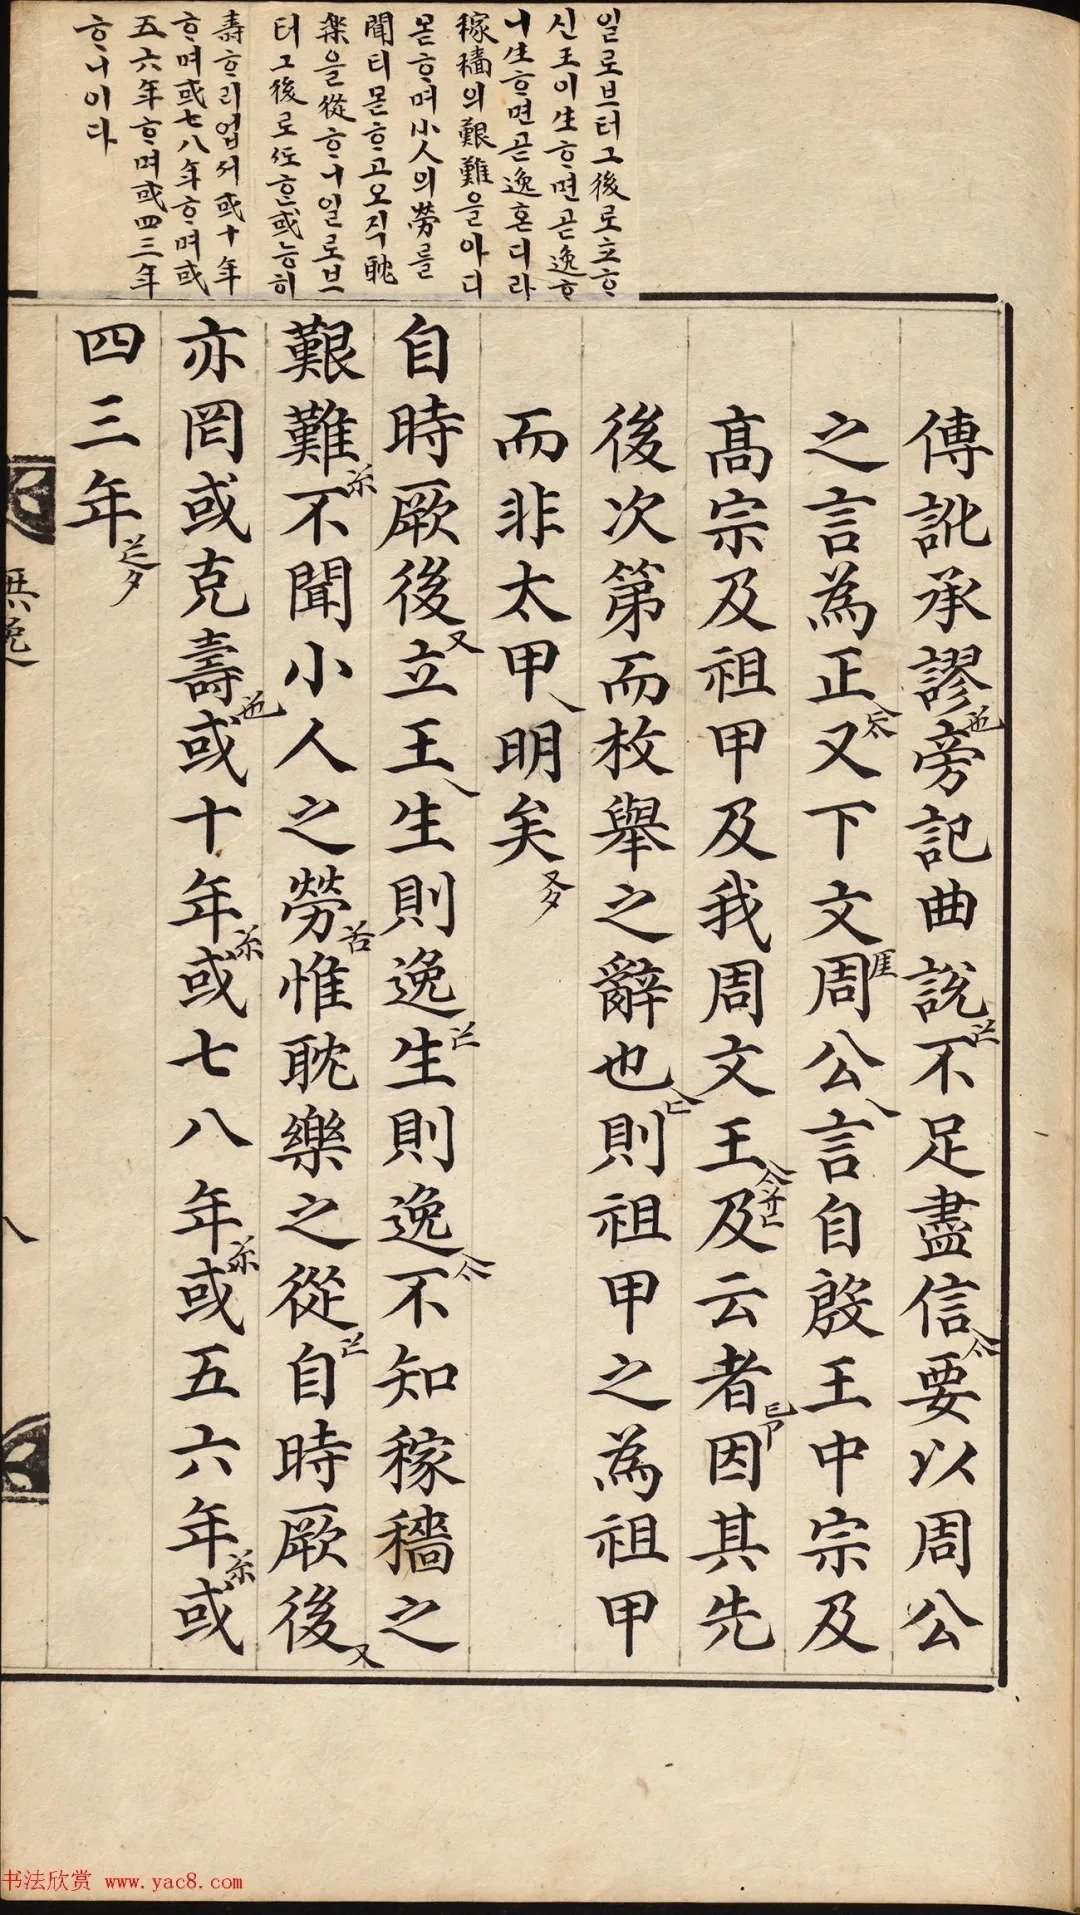 일로브터그後로立ᄒᆞ
신王이生ᄒᆞ면곧逸ᄒᆞ
니生ᄒᆞ면곧逸혼디라
稼穡의艱難을아디
몯ᄒᆞ며小人의勞를
聞티몯ᄒᆞ고오직耽
樂을從ᄒᆞ니일로브
터그後로亦或능히
壽ᄒᆞ리업서或十年
ᄒᆞ며或七八年ᄒᆞ며或
五六年ᄒᆞ며或四三年
ᄒᆞ니이다
傳訛承謬旁記曲說不足盡信要以周公
之言為正又下文周公言自殷王中宗及
高宗及祖甲及我周文王及云者因其先
後次第而枚舉之辭也則祖甲之為祖甲
而非太甲明矣
自時厥後立王生則逸生則逸不知稼穡之
艱難不聞小人之勞惟耽樂之從自時厥後
亦罔或克壽或十年或七八年或五六年或
四三年
無逸
八
书法欣赏 www.yac8.com